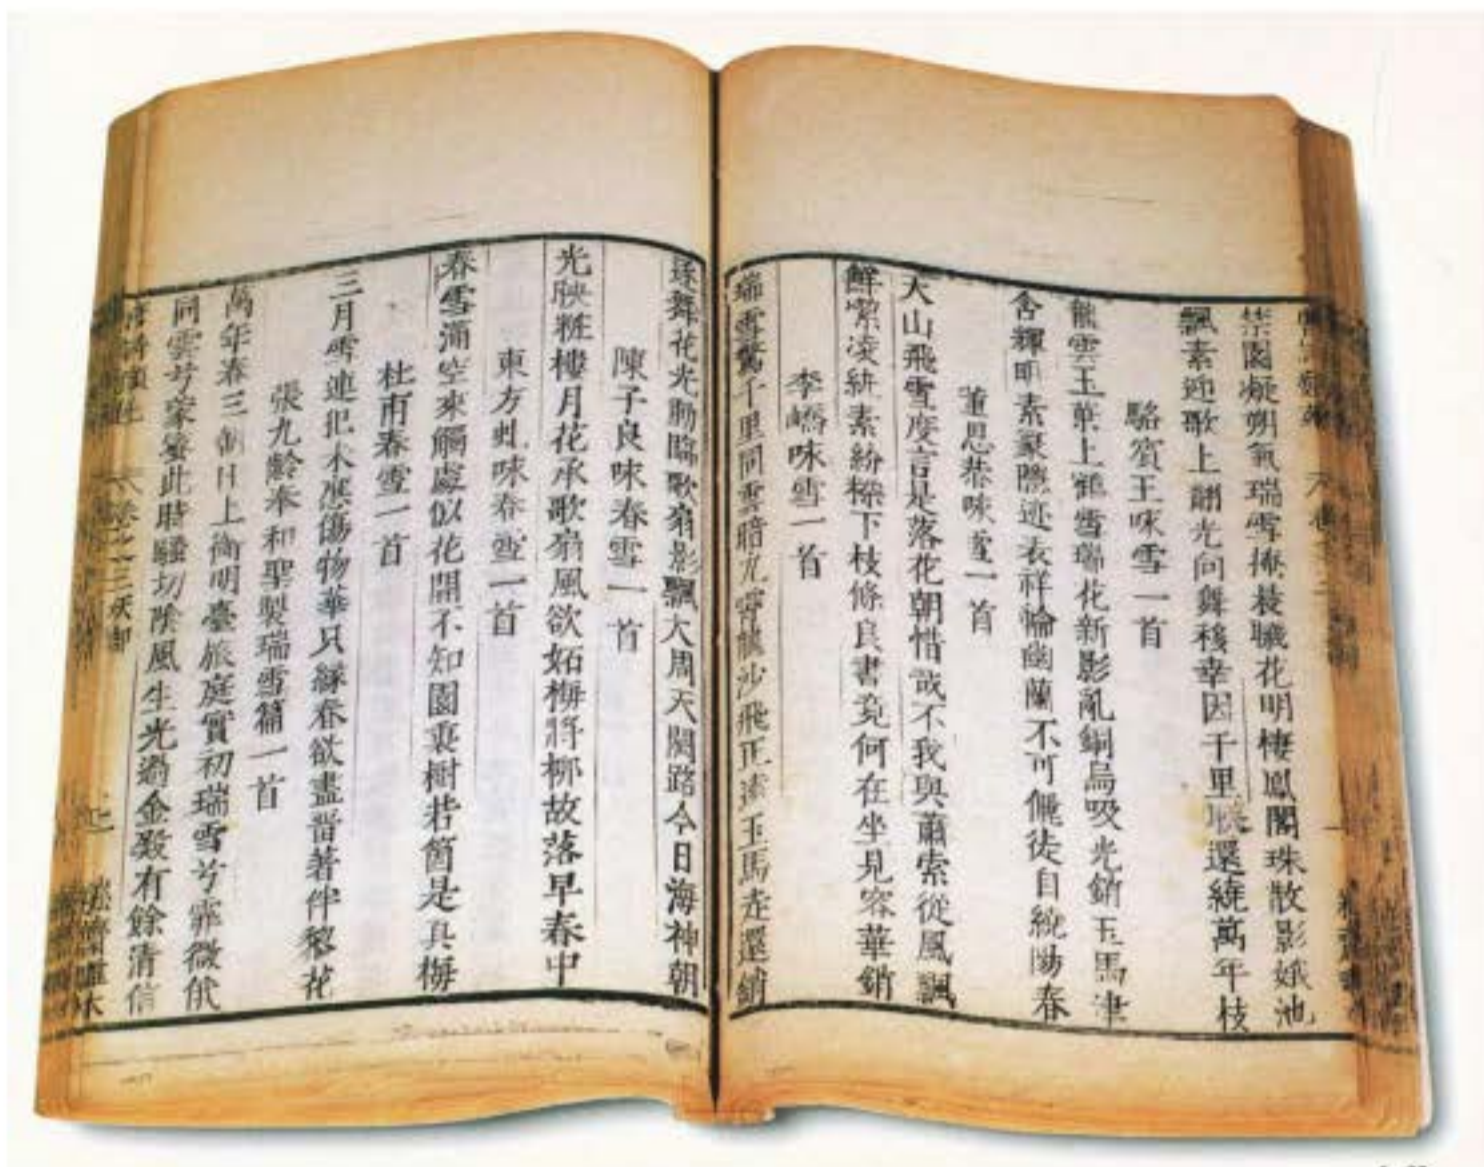 禁園凝朔氣瑞雪掩晨曦花明棲鳳閣珠散影娥池
飄素迎歌上翻光向舞移幸因千里映還繞萬年枝
駱賓王咏雪一首
龍雲玉葉上鶴雪瑞花新影亂銅烏吸光銷玉馬津
含輝明素篆隱迹表祥輪幽蘭不可儷徒自繞陽春
董思恭咏雪一首
天山飛雪度言是落花朝惜哉不我與蕭索從風飄
鮮潔凌紈素紛糅下枝條良書竟何在坐見容華銷
李嶠咏雪一首
瑞雪驚千里同雲暗九霄龍沙飛正遠玉馬走還銷
逐舞花光動臨歌扇影飄大周天闕路今日海神朝
陳子良咏春雪一首
光映粧樓月花承歌扇風欲妬梅將柳故落早春中
東方虬咏春雪一首
春雪滿空來觸處似花開不知園裏樹若箇是真梅
杜甫春雪一首
三月雪連把木應傷物華只緣春欲盡畱著伴棃花
張九齡奉和聖製瑞雪篇一首
萬年春三朝日上衢明臺旅庭實初瑞雪兮霏微俄
同雲兮蒙密此時騷切陰風生先過金殿有餘清信
卷之三